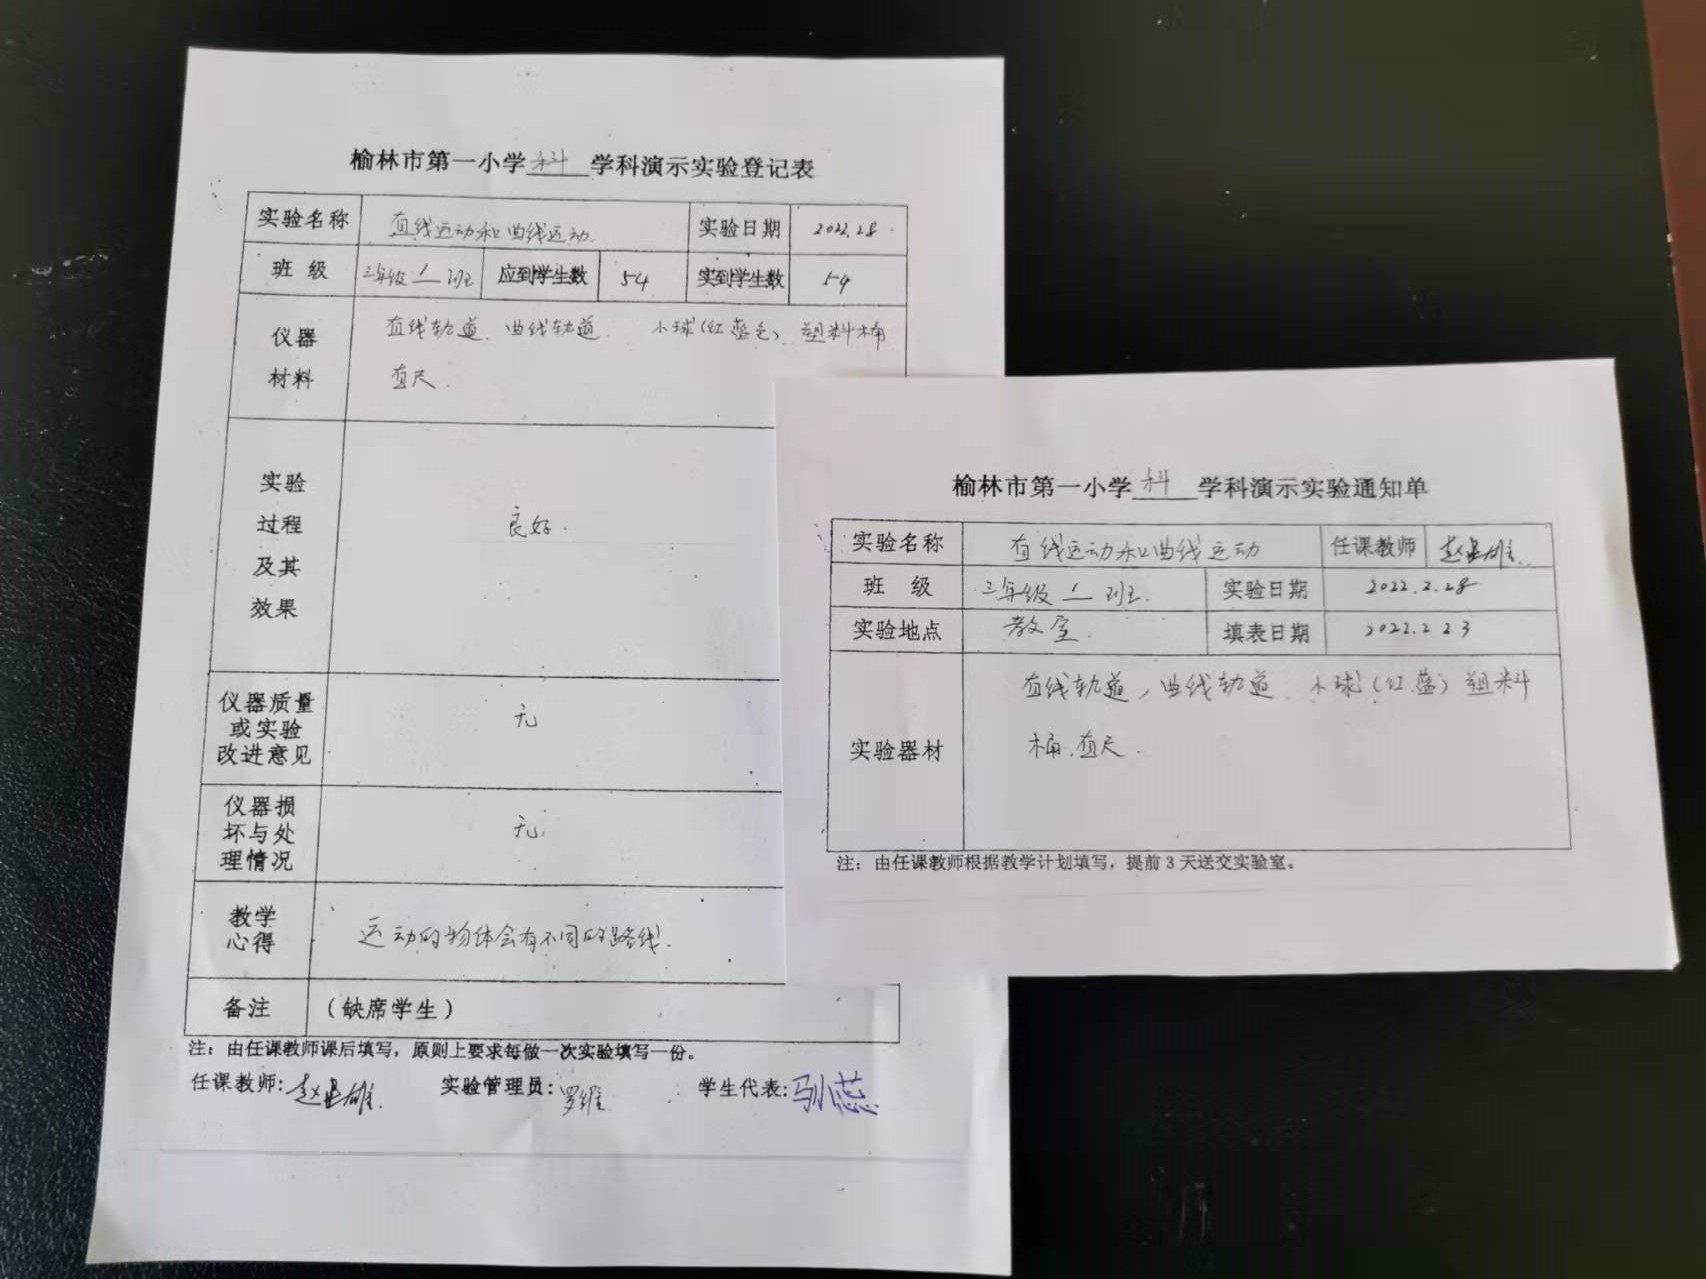 榆林市第一小学 科 学科演示实验登记表
实验名称 直线运动和曲线运动. 实验日期 2022.28.
班 级 三年级 1 班 应到学生数 54 实到学生数 54
仪器
材料
直线轨道、曲线轨道. 小球(红蓝色)、塑料桶
直尺.
实验
过程
及其
效果
良好.
仪器质量
或实验
改进意见
无
仪器损
坏与处
理情况
无.
教学
心得
运动的物体会有不同的路线.
备注 (缺席学生)
注：由任课教师课后填写，原则上要求每做一次实验填写一份。
任课教师: 实验管理员: 罗维 学生代表:
榆林市第一小学 科 学科演示实验通知单
实验名称 直线运动和曲线运动 任课教师
班 级 三年级 1 班. 实验日期 2022.2.28
实验地点 教室. 填表日期 2022.2 23
实验器材
直线轨道，曲线轨道. 小球(红.蓝) 塑料
桶.直尺.
注：由任课教师根据教学计划填写，提前 3 天送交实验室。